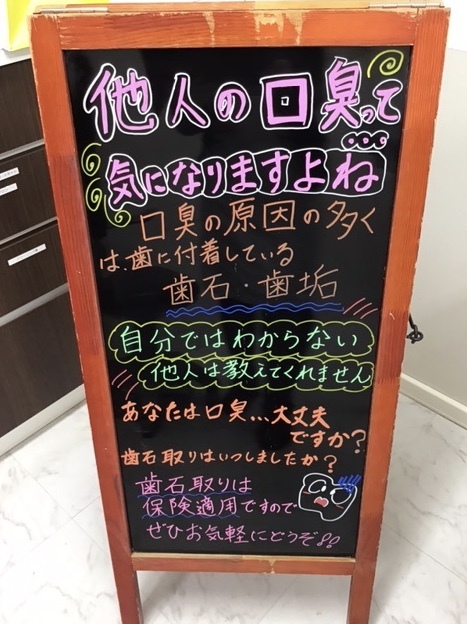 他人の口臭って
・・・
気になりますよね
口臭の原因の多く
は、歯に付着している
歯石・歯垢
自分ではわからない
他人は教えてくれません
あなたは口臭...大丈夫
ですか?
歯石取りはいつしましたか?
歯石取りは
保険適用ですので
ぜひお気軽にどうぞ!!